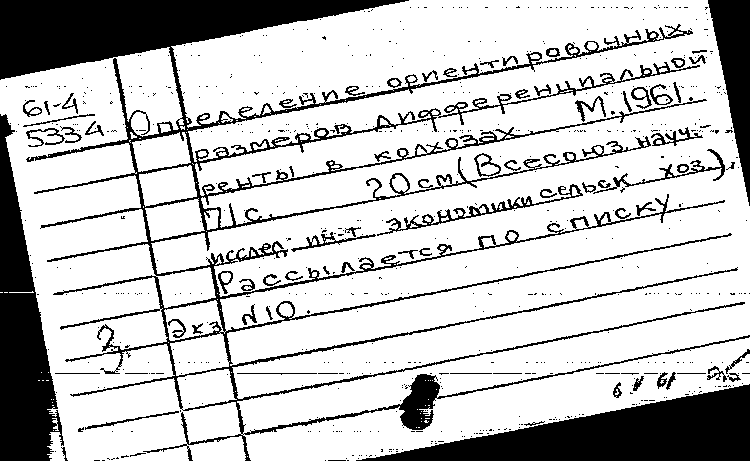 61-4
5334
Определение ориентировочных
размеров дифференциальной
ренты в колхозах. М., 1961.
71 с. 20 см. (Всесоюз. науч.-
исслед. ин-т экономики сельск. хоз.).
Рассылается по списку.
Экз. N10.
3
6 V 61